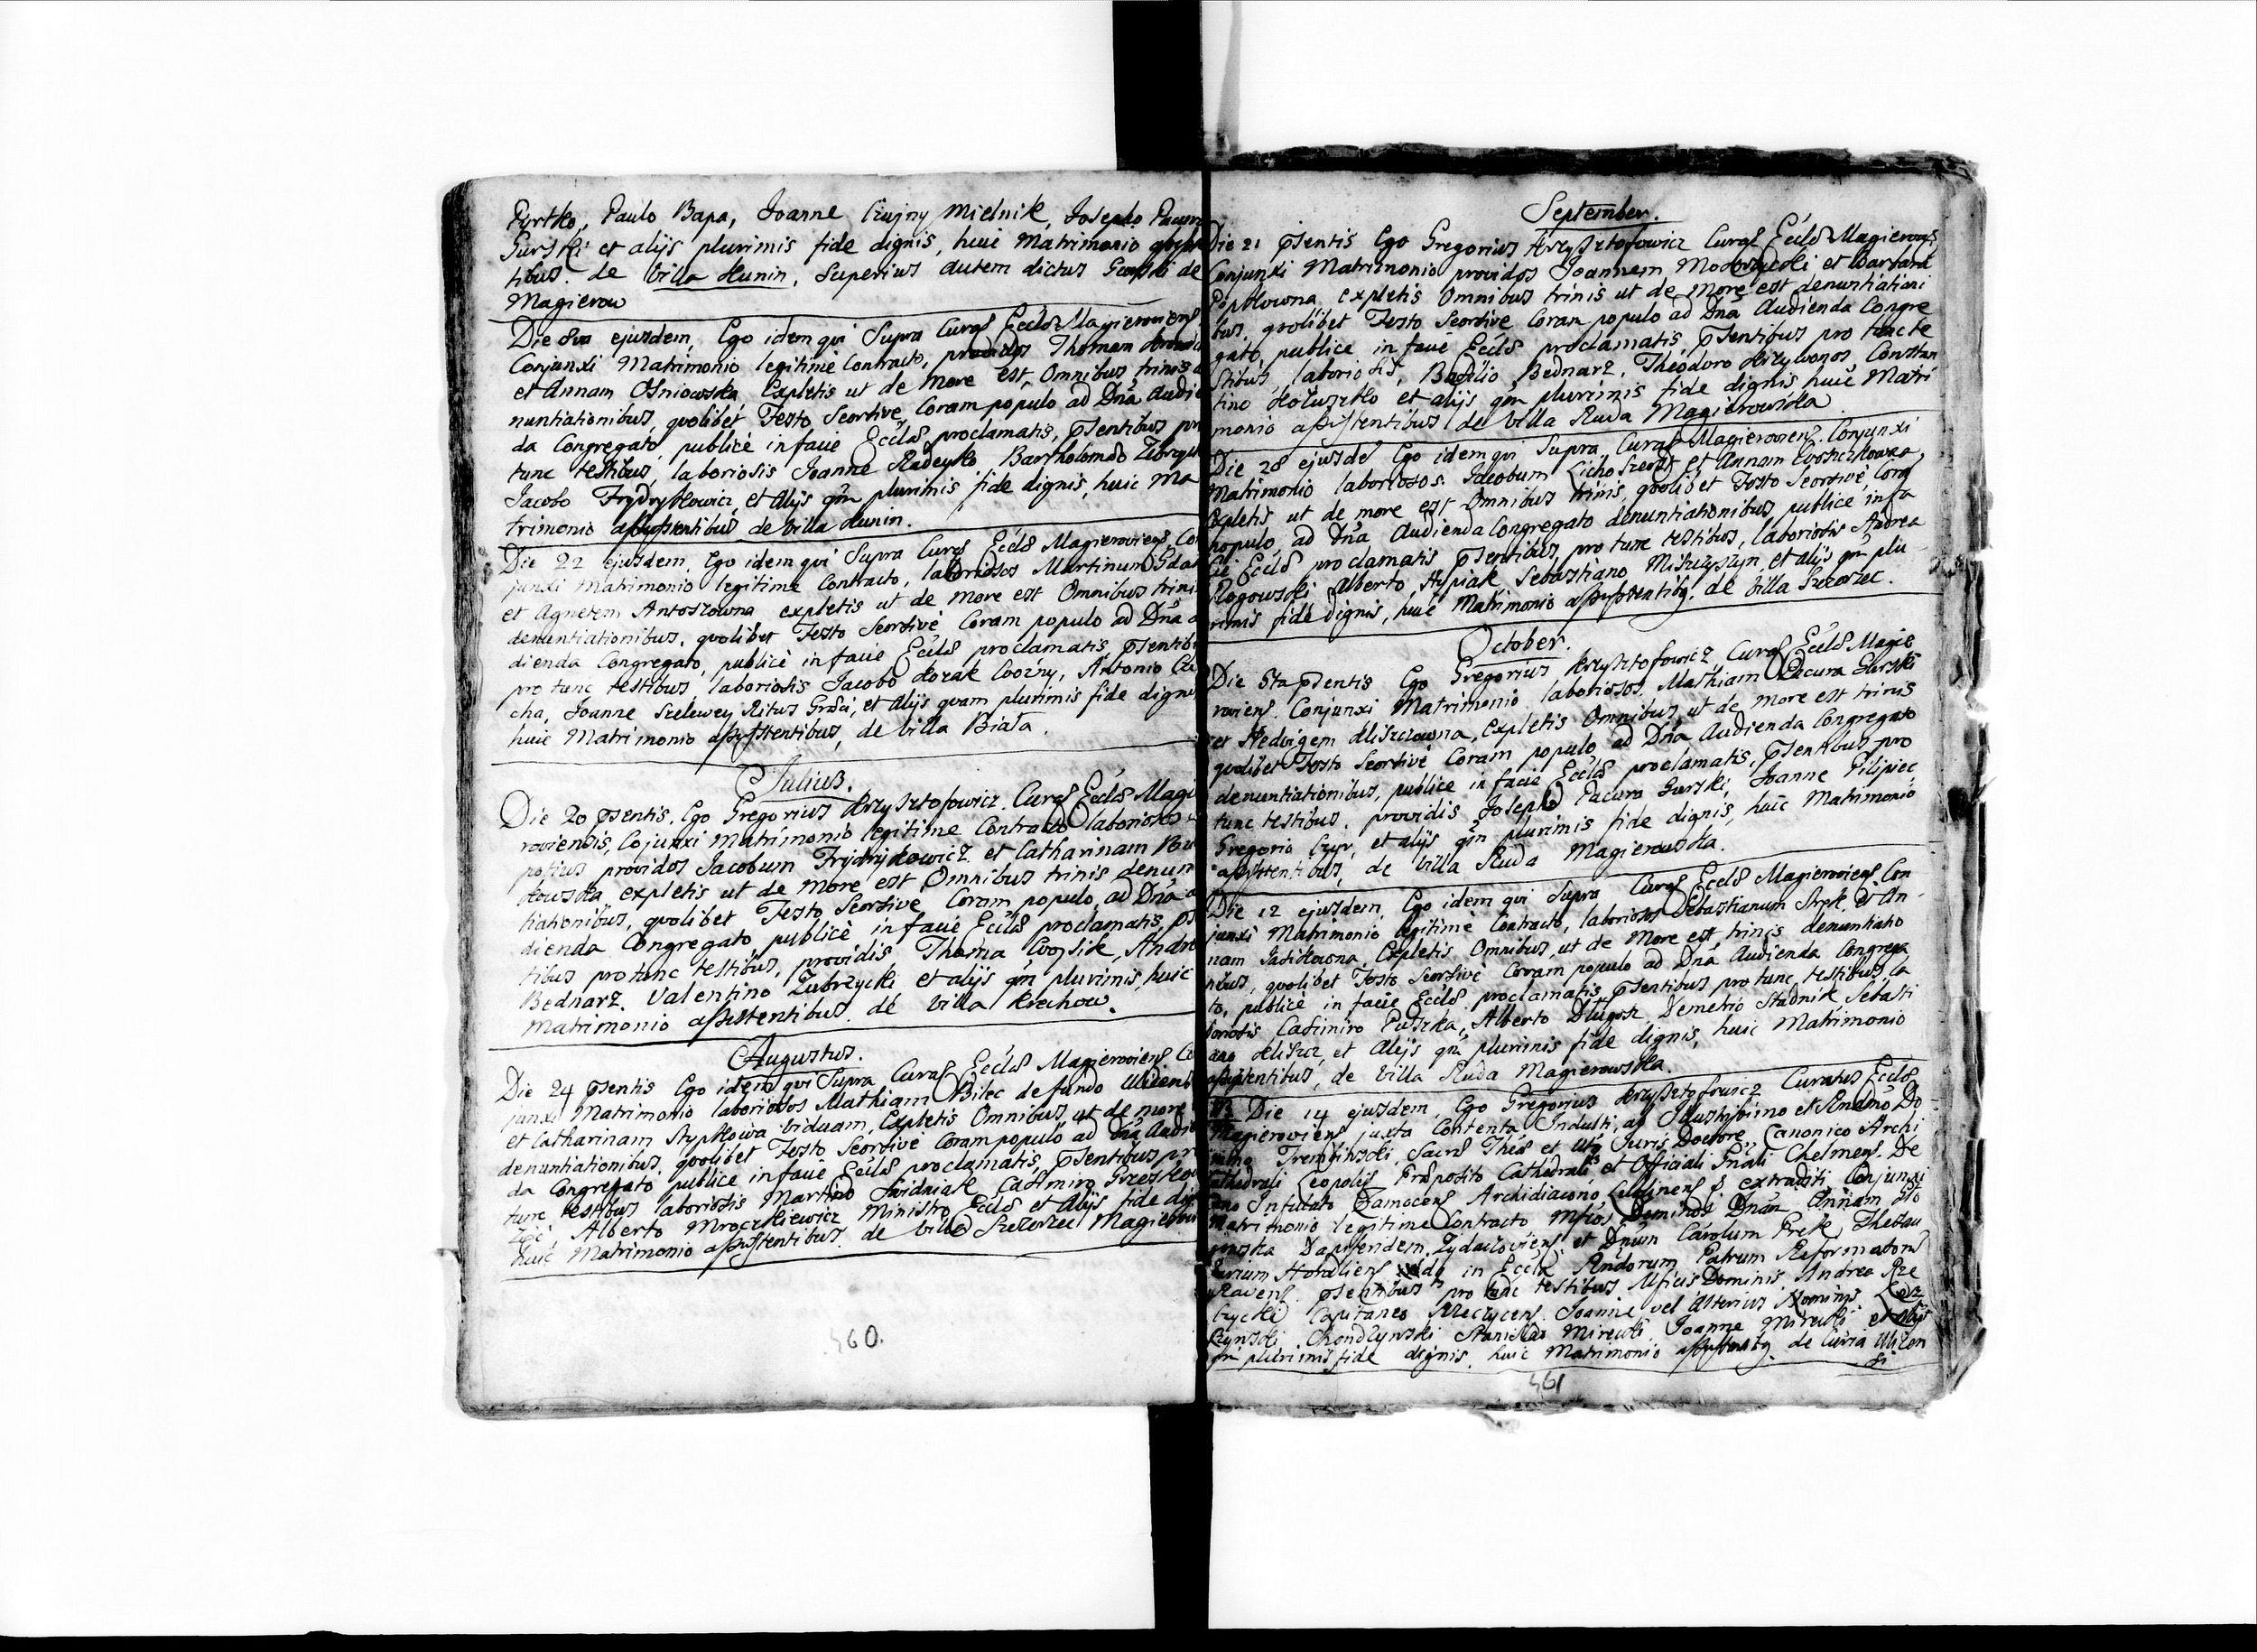 Pyrtko, Paulo Bapa, Joanne Czujny Mielnik, Josepho
Gurski et alijs plurimis fide dignis, huic Matrimonio
tibus. de Villa Hunin. Superius autem dictus Gurski de
Magierow
Die 8va ejusdem, Ego idem qui Supra Curat Eccl Magieroviens
Conjunxi Matrimonio legitimè Contracto, providos Thomam
et Annam Osniowska, Expletis ut de More est, Omnibus trinis
nuntiationibus, quolibet Festo Seorsive Coram populo ad Dna Audi
da Congregato, publicè in facie Eccl proclamatis, psentibus
tunc testibus, laboriosis Joanne Radeyko, Bartholomeo
Jacobo Frydrykowicz, et Alijs qm plurimis fide dignis, huic Ma
trimonio assystentibus de Villa Hunin.
Die 22 ejusdem, Ego idem qui Supra Curat Eccl Magieroviens, Con
junxi Matrimonio legitime Contracto, laboriosos Martinum
et Agnetem Antoszowna expletis ut de More est Omnibus trini
denuntiationibus, quolibet Festo Seorsive Coram populo ad Dna
dienda Congregato, publicè in facie Eccl proclamatis, psentib
pro tunc testibus, laboriosis Jacobo Kozak Woźny, Antonio
cha, Joanne Szelewey Ritus Graeci, et Alijs quam plurimis fide digni
huic Matrimonio assystentibus, de Villa Biała.
Julius.
Die 20 psentis. Ego Gregorius Krzysztofowicz Curat Eccl Magi
roviensis, Cojunxi Matrimonio legitime Contracto laboriosos
potius providos Jacobum Frydrykowicz et Catharinam
kowska expletis ut de More est Omnibus trinis denun
tiationibus, quolibet Festo Seorsive Coram populo, ad Dna
dienda Congregato, publicè in facie Eccl proclamatis,
tibus pro tunc testibus, providis Thoma Woysik, Andre
Bednarz. Valentino Zubrzycki et alijs qm plurimis, huic
Matrimonio assistentibus. de Villa Krechow.
Augustus.
Die 24 psentis Ego idem qui Supra Curat Eccl Magieroviens Co
junxi Matrimonio laboriosos Mathiam Bilec de fundo
et Catharinam Stypkowa viduam, Expletis Omnibus, ut de more
denuntiationibus, quolibet Festo Seorsivè Coram populo ad Dna Audi
da Congregato publice in facie Eccl proclamatis, psentibus pr
tunc testibus laboriosis Martino Swidniak Casimiro
Alberto Mroczkiewicz Ministro Eccl et Alijs fide
huic Matrimonio assystentibus de Villa Szczerzec
460.
September.
Die 21 psentis Ego Gregorius Krzysztofowicz Curat Eccl Magierovi
Conjunxi Matrimonio providos Joannem et Barbara
expletis Omnibus trinis ut de More est denuntiationi
bus, quolibet Festo Seorsive Coram populo ad Dna Audienda Congre
gato, publice in facie Eccl proclamatis, psentibus pro tunc te
stibus, laboriosis, Basilio Bednarz, Theodoro Krzywonos, Constan
tino Hołuszko et alijs qm plurimis fide dignis huic Matri
monio assystentibus de Villa Ruda Magierowska
Die 28 ejusde Ego idem qui Supra Curat Magieroviens. Conjunxi
Matrimonio laboriosos Jacobum et Annam
Expletis ut de more est Omnibus trinis, quolibet Festo Seorsivè, Cora
populo ad Dna Audienda Congregato denuntiationibus publice in fa
cie Eccl proclamatis psentibus, pro tunc testibus, laboriosis Andrea
Rogowski Alberto Stypiak Sebastiano Miszczyszyn, et alijs qm plu
rimis fide dignis, huic Matrimonio assystentibq. de Villa Szczerzec.
October.
Die 5ta psentis Ego Gregorius Krzysztofowicz Curat Eccl Magie
roviens. Conjunxi Matrimonio laboriosos Mathiam Pacura Gurski
et Hedvigem Heliszczowna, Expletis Omnibus, ut de More est trinis
quolibet Festo Seorsivè Coram populo ad Dna Audienda Congregato
denuntiationibus, publice in facie Eccl proclamatis, psentibus pro
tunc testibus. providis Josepho Pacura Gurski, Joanne Pilipiec
Gregorio Czyr, et alijs qm plurimis fide dignis, huic Matrimonio
assistentibus, de Villa Ruda Magierowska.
Die 12 ejusdem, Ego idem qui Supra Curat Eccl Magieroviens Con
junxi Matrimonio legitimè Contracto, laboriosos Sebastianum et An-
nam Expletis Omnibus, ut de More est, trinis denuntiatio
nibus, quolibet Festo Seorsivè Coram populo ad Dna Audienda Congrega
to, publicè in facie Eccl proclamatis psentibus pro tunc testibus, la
boriosis Casimiro Puszka, Alberto Długosz Demetrio Stadnik Sebasti
ano Helisz, et Alijs qm plurimis fide dignis, huic Matrimonio
assystentibus, de Villa Ruda Magierowska.
Die 14 ejusdem. Ego Gregorius Krzysztofowicz Curatus Eccl
Magieroviens juxta Contenta Indulti, ab Illustrissimo et Rndmo Do
mino Trembinski, Sacr Thea et Utq Juris Doctore, Canonico Archi
cathedrali Leopolis Praeposito Cathedrali et Officiali Gnali Chelmens. De
cano Infulato Zamocens Archidiacono Lublinens extraditi Conjunxi
Matrimonio legitime Contracto Mficos Dominos Dnam Annam
Dapiferidem Zydaczoviens et Dnum Carolum Thesau
rarium in Eccla Rndorum Patrum Reformatorum
Ravens. psentibus pro tunc testibus Mficis Dominis, Andrea Rze
czycki Capitaneo Joanne vel Alterius Nominis
Chondzynski Stanislao Mirecki Joanne Mirecki et Alijs
qm plurimis fide dignis, huic Matrimonio assystentibq. de Curia
461